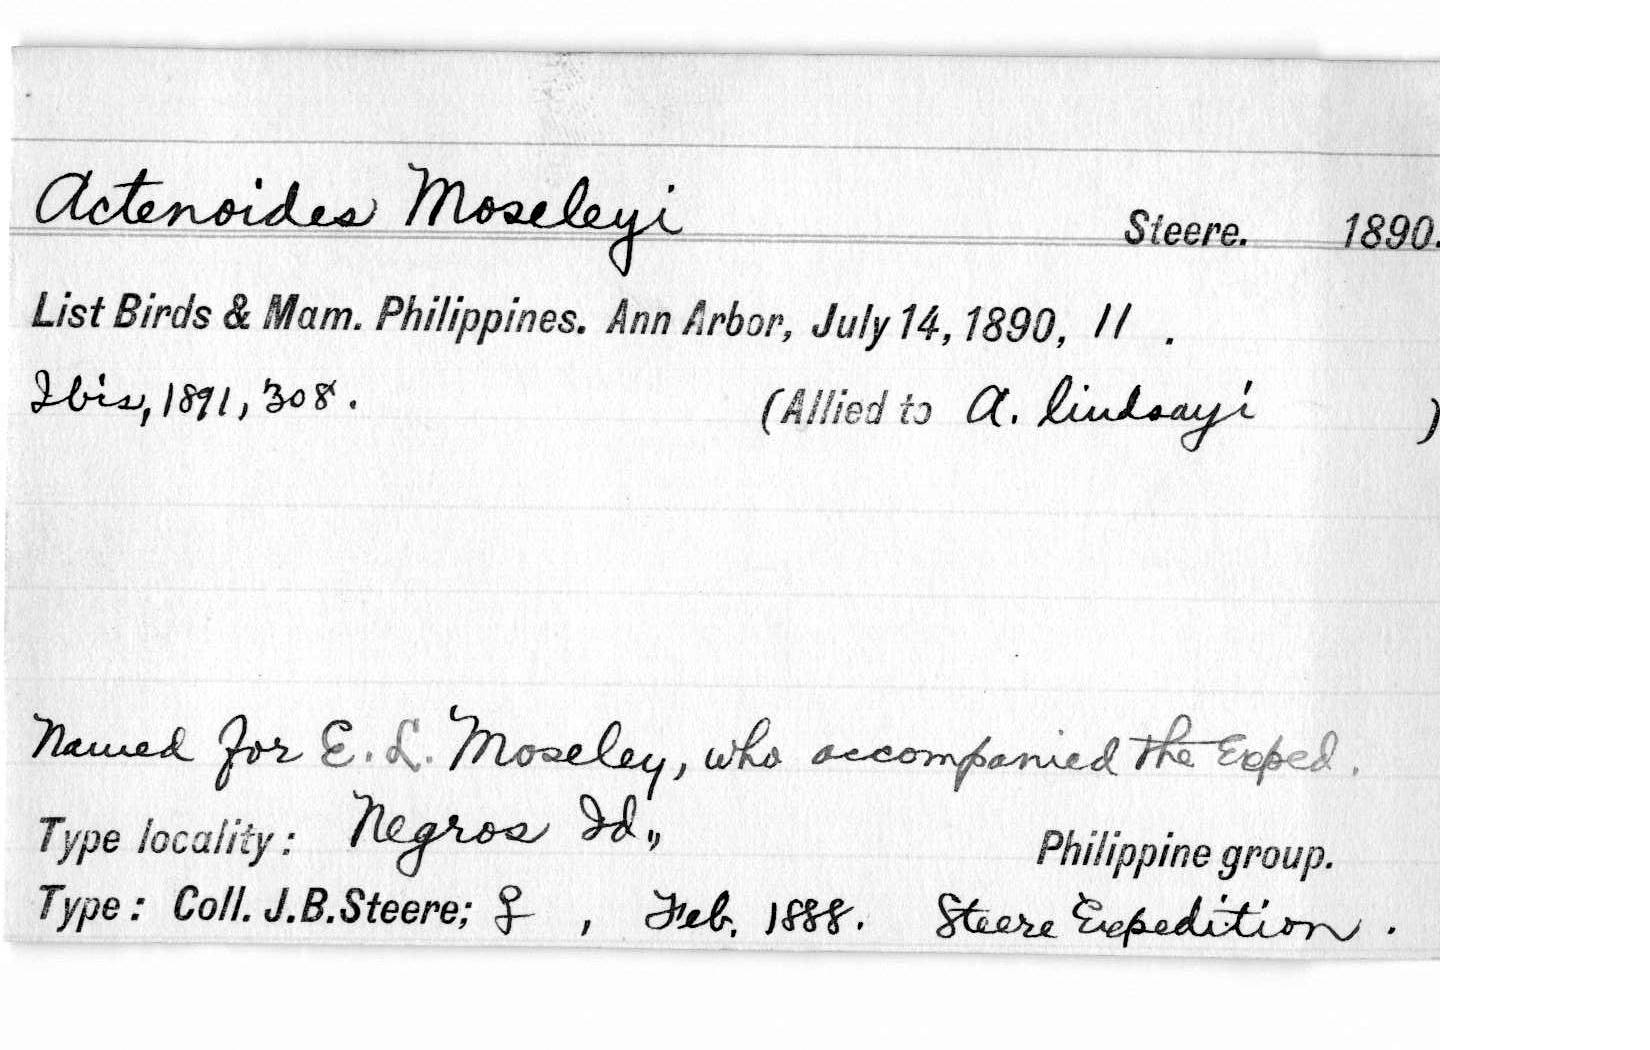 Actenoides Moseleyi Steere. 1890.
List Birds & Mam. Philippines. Ann Arbor, July 14, 1890, 11 .
Ibis, 1891, 308. (Allied to A. lindsayi )
Named for E. L. Moseley, who accompanied the Exped.
Type locality: Negros Id., Philippine group.
Type: Coll. J.B.Steere; ♀ , Feb. 1888. Steere Expedition .